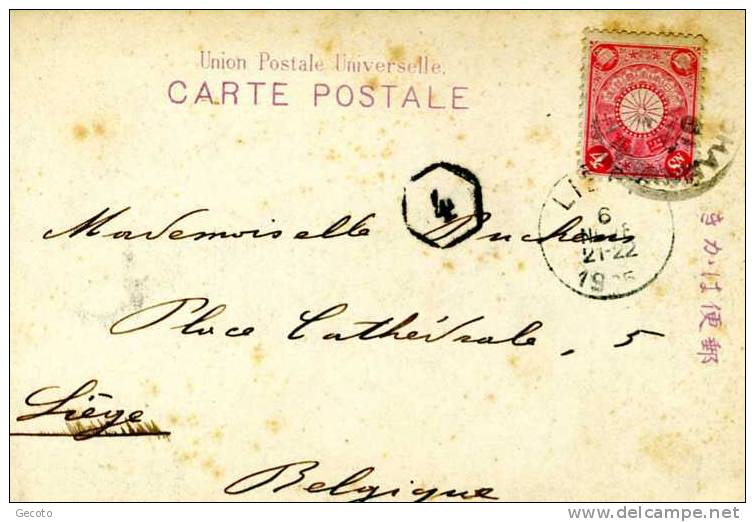 Union Postale Universelle.
CARTE POSTALE
4
4 Sn
6
21-22
19
きかは便郵
Mademoiselle
Place Cathédrale, 5
Liège
Belgique
Gecoto
© delcampe.net